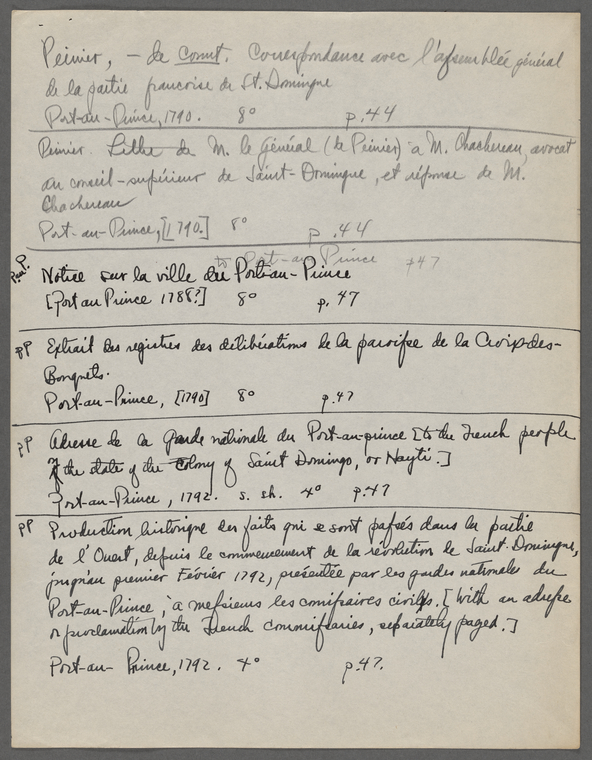 Peinier, – de comt. Correspondance avec l'assemblée général
de la partie francoise de St. Domingue
Port-au-Prince, 1790. 8° p. 44
Peinier. Lettre de M. le Général (de Peinier) a M. Chachereau, avocat
au conseil-supérieur de Saint-Domingue, et réponse de M.
Chachereau
Port-au-Prince, [1790.] 8° p. 44
to Port-au-Prince p47
P.au P. Notice sur la ville du Port-au-Prince
[Port au Prince 1788?] 8° p. 47
PP Extrait des registres des délibérations de la paroisse de la Croix-des-
Bouquets.
Port-au-Prince, [1790] 8° p.47
PP Adresse de la Garde nationale du Port-au-prince [to the French people
of the state of the Colony of Saint Domingo, or Hayti.]
Port-au-Prince, 1792. s. sh. 4° p.47
PP Production historique des faits qui se sont passés dans la partie
de l'Ouest, depuis le commencement de la révolution de Saint-Domingue,
jusqu'au premier Février 1792, présentée par les gardes nationales du
Port-au-Prince, à messieurs les comissaires civils. [With an adresse
or proclamation by the French commissaries, separately paged.]
Port-au-Prince, 1792. 4° p.47.